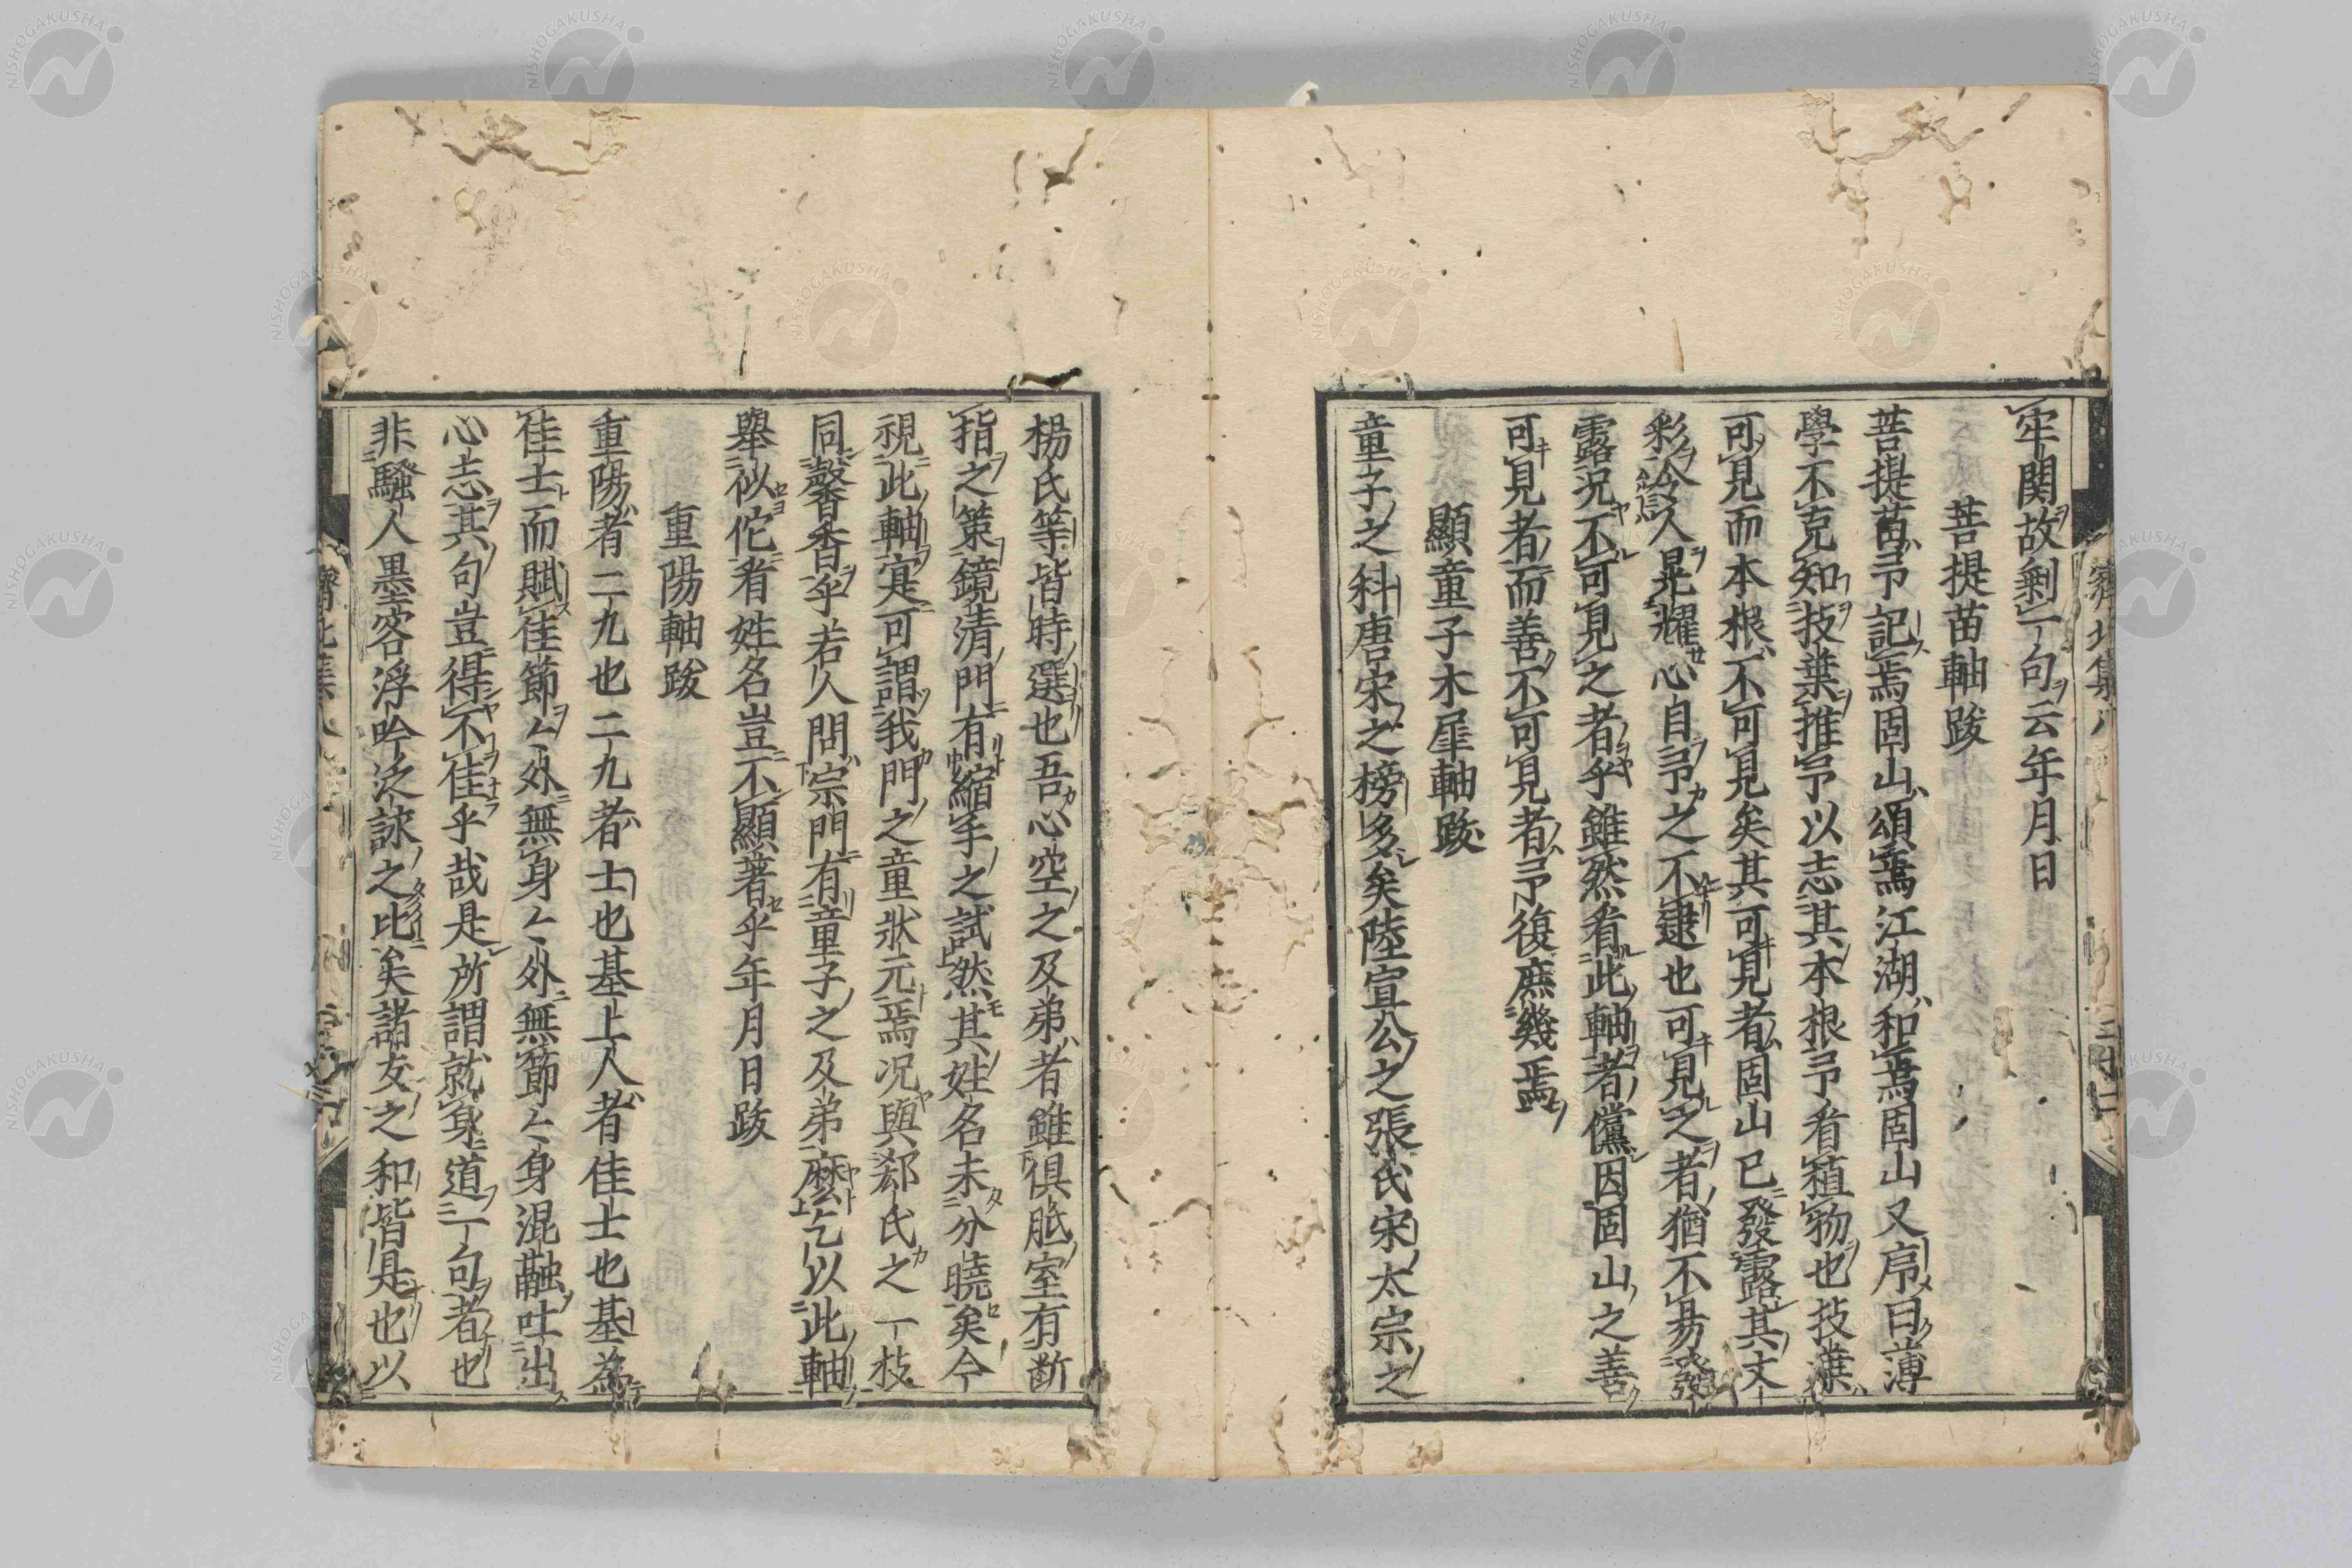 牢関故剰一句云年月日
菩提苗軸跋
菩提苗予記焉固山頌焉江湖和焉固山又序曰薄
學不克知技葉推予以志其本根予看植物也技葉
可見而本根不可見矣其可見者固山已發露其文
彩令人晃耀心自予之不逮也可見之者猶不易發
露況不可見之者乎雖然看此軸者儻因固山之善
可見者而善不可見者予復庶幾焉
顯童子木犀軸跋
童子之科唐宋之榜多矣陸宣公之張氏宋太宗之
楊氏等皆時選也吾心空之及弟者雖俱胝室有斷
指之策鏡清門有縮手之試然其姓名未分曉矣今
視此軸寔可謂我門之童狀元焉況與郄氏之一枝
同馨香乎若人問宗門有童子之及弟麼乞以此軸
舉似佗看姓名豈不顯著乎年月日跋
重陽軸跋
重陽者二九也二九者士也基上人者佳士也基為
佳士而賦佳節々外無身々外無節々身混融吐出
心志其句豈得不佳乎哉是所謂就身道一句者也
非騷人墨客浮吟泛詠之比矣諸友之和皆是也以
濟北集八
三十二